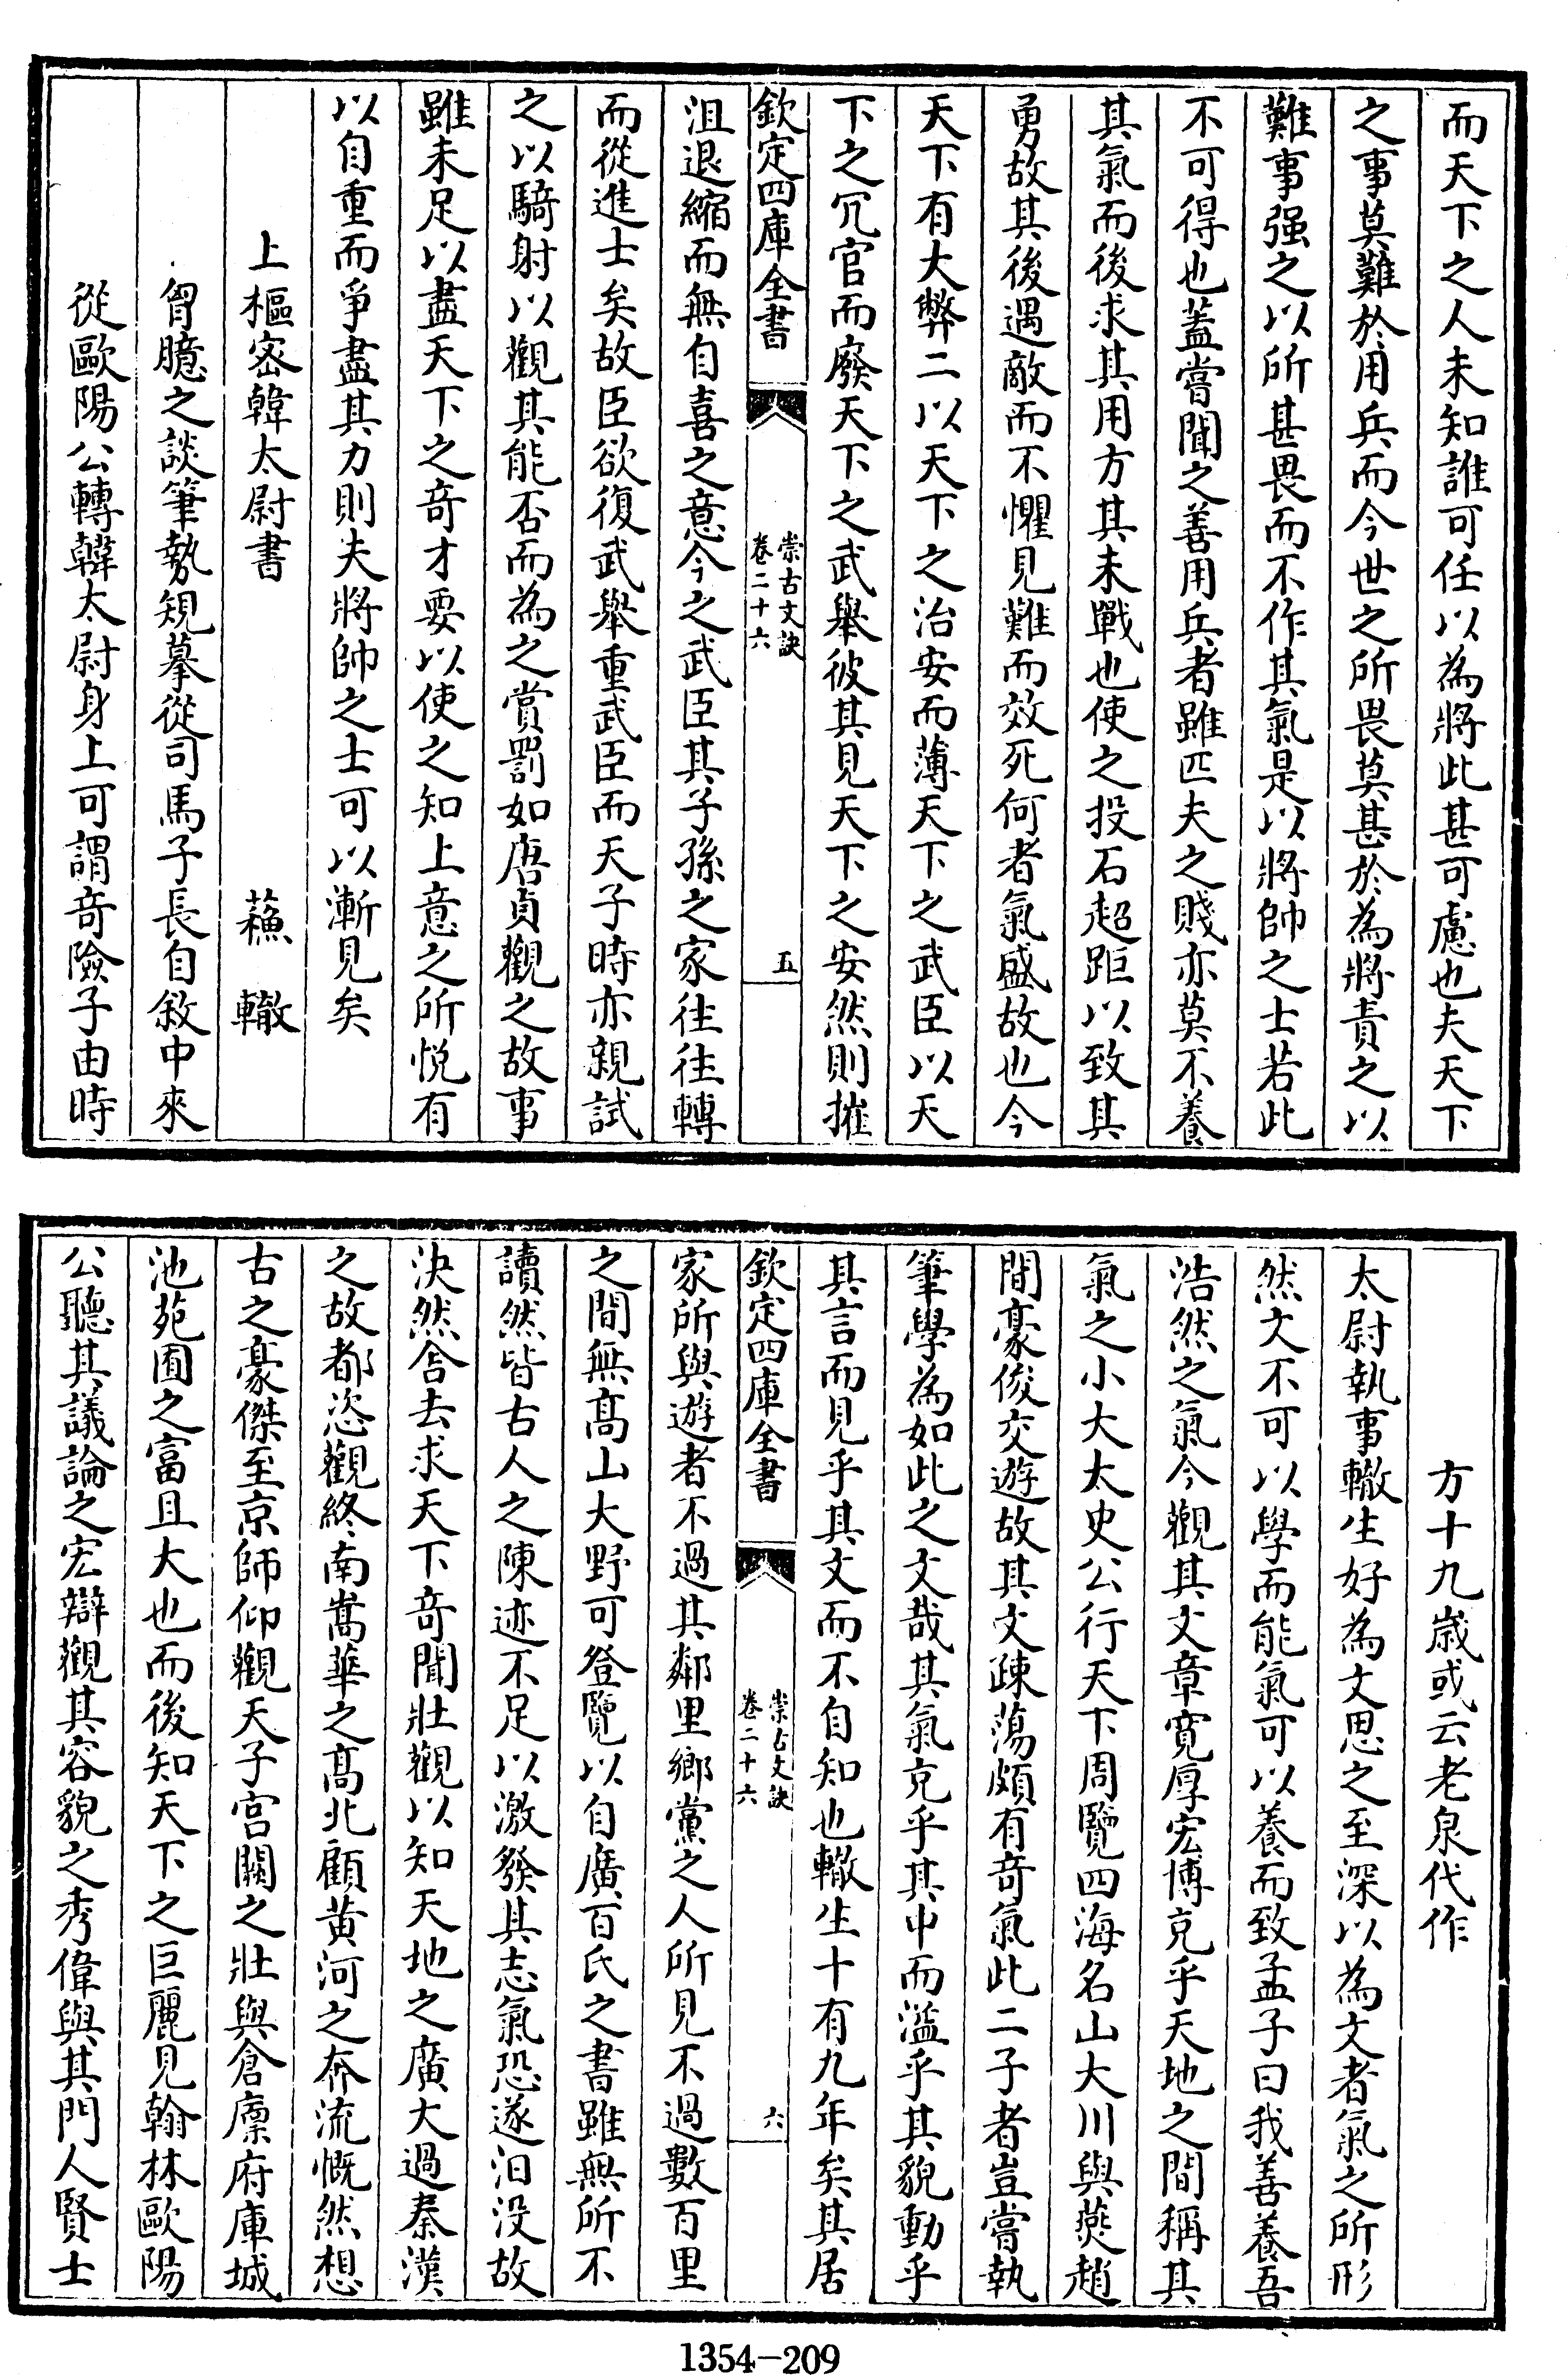 而天下之人未知誰可任以為將此甚可慮也夫天下
之事莫難於用兵而今世之所畏莫甚於為將責之以
難事强之以所甚畏而不作其氣是以將帥之士若此
不可得也蓋嘗聞之善用兵者雖匹夫之賤亦莫不養
其氣而後求其用方其未戰也使之投石超距以致其
勇故其後遇敵而不懼見難而效死何者氣盛故也今
天下有大弊二以天下之治安而薄天下之武臣以天
下之冗官而廢天下之武舉彼其見天下之安然則摧
欽定四庫全書
崇古文訣
卷二十六
五
沮退縮而無自喜之意今之武臣其子孫之家往往轉
而從進士矣故臣欲復武舉重武臣而天子時亦親試
之以騎射以觀其能否而為之賞罰如唐貞觀之故事
雖未足以盡天下之奇才要以使之知上意之所悅有
以自重而爭盡其力則夫將帥之士可以漸見矣
上樞密韓太尉書 蘓轍
胷臆之談筆勢規摹從司馬子長自敘中來
從歐陽公轉韓太尉身上可謂奇險子由時
方十九歲或云老泉代作
太尉執事轍生好為文思之至深以為文者氣之所形
然文不可以學而能氣可以養而致孟子曰我善養吾
浩然之氣今觀其文章寬厚宏博充乎天地之間稱其
氣之小大太史公行天下周覽四海名山大川與燕趙
間豪俊交遊故其文疎蕩頗有奇氣此二子者豈嘗執
筆學為如此之文哉其氣充乎其中而溢乎其貌動乎
其言而見乎其文而不自知也轍生十有九年矣其居
欽定四庫全書
崇古文訣
卷二十六
六
家所與遊者不過其鄰里鄉黨之人所見不過數百里
之間無髙山大野可登覽以自廣百氏之書雖無所不
讀然皆古人之陳迹不足以激發其志氣恐遂汩没故
決然舎去求天下奇聞壯觀以知天地之廣大過秦漢
之故都恣觀終南嵩華之髙北顧黄河之奔流慨然想
古之豪傑至京師仰觀天子宫闕之壯與倉廪府庫城
池苑囿之富且大也而後知天下之巨麗見翰林歐陽
公聽其議論之宏辯觀其容貌之秀偉與其門人賢士
1354-209